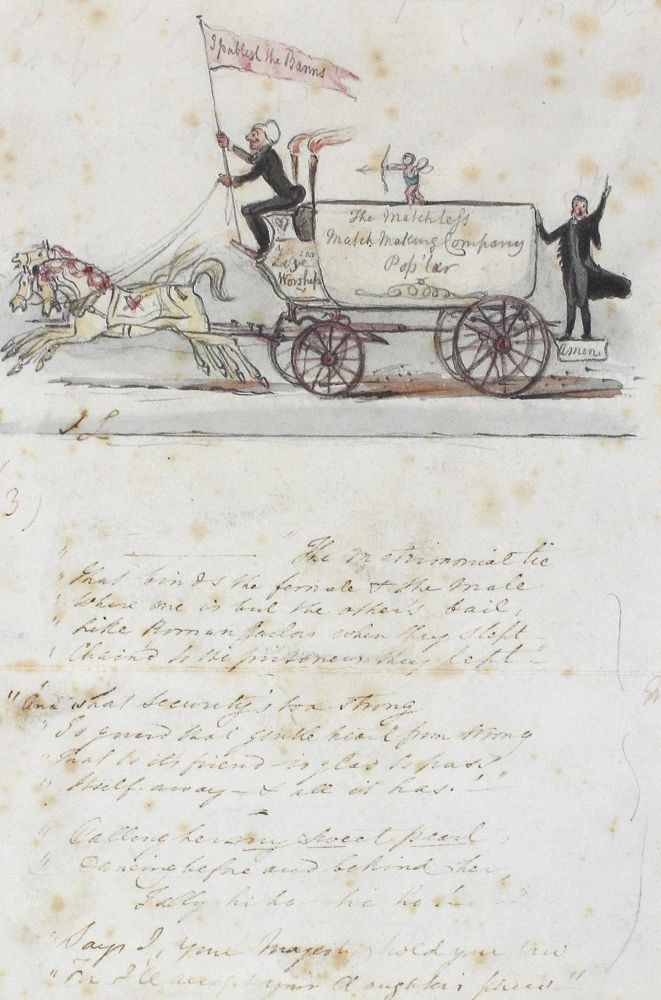 I publish the Banns
The Matchless
Match Making Company
Pop'lar
Worship
amen
3)
" The matrimonial tie
" that binds the female & the male
" Where one is but the other's bail,
" Like Roman Jailors when they slept
" Chain'd to the prisoners they kept —"
" And what security's too strong
" To guard that gentle heart from wrong
" that to its friend is glad to pass
" Itself away — & all it has! —"
" Calling her my sweet pearl,
" Dancing before and behind her,
hi ho —
" Says I, your Majesty, hold your jaw
" For I'll accept your Daughter's